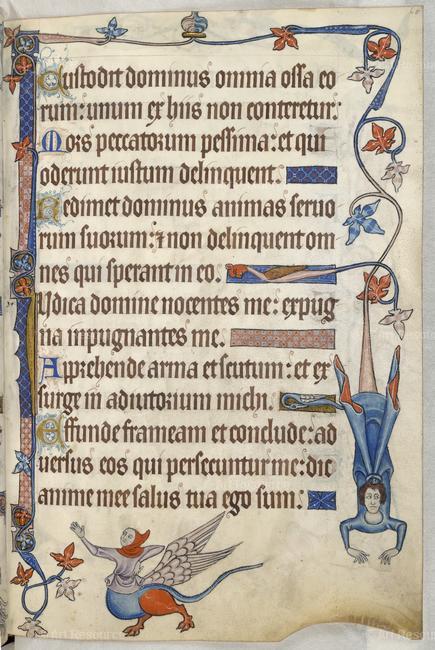 Custodit dominus omnia ossa eo
rum: unum ex hiis non conteretur:
Mors peccatorum pessima: et qui
oderunt iustum delinquent.
Redimet dominus animas seruo
rum suorum: ⁊ non delinquent om
nes qui sperant in eo.
Iudica domine nocentes me: expug
na inpugnantes me.
Apprehende arma et scutum: et ex
surge in adiutorium michi.
Effunde frameam et conclude: ad
uersus eos qui persecuntur me: dic
anime mee salus tua ego sum: